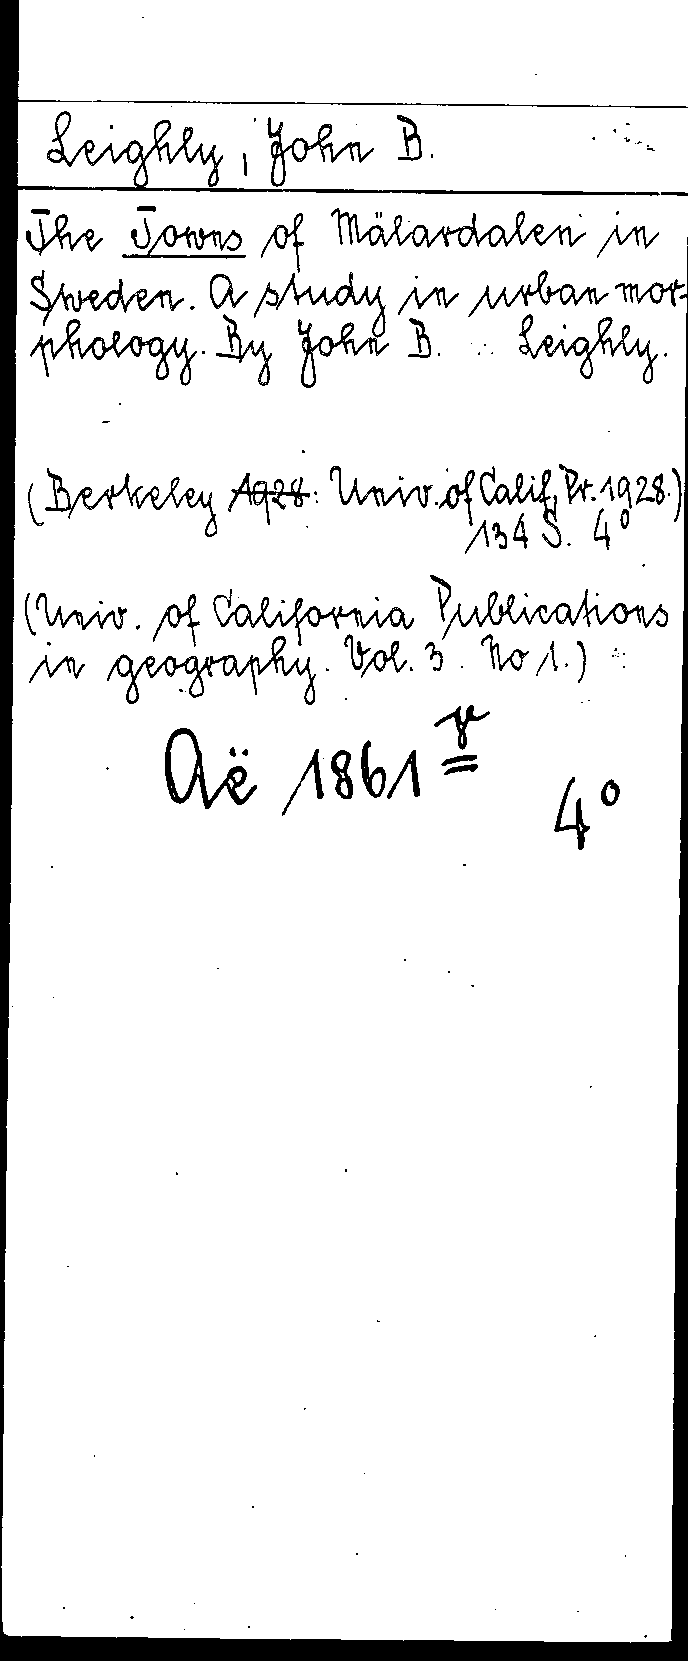 Leighly, John B.
The Towns of Mälardalen in
Sweden. A study in urban mor-
phology. By John B. Leighly.
(Berkeley 1928: Univ. of Calif. Pr. 1928.)
134 S. 4°
(Univ. of California Publications
in geography. Vol. 3. No 1.)
Aë 1861
4°